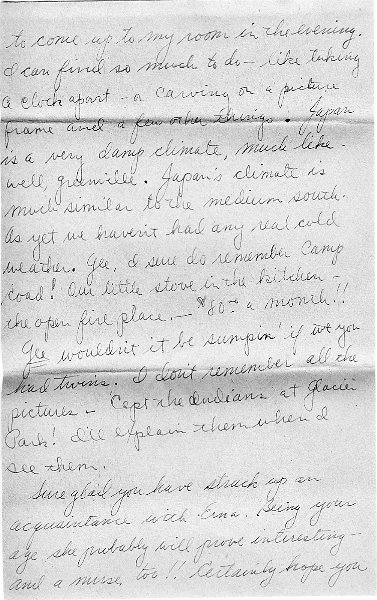 to come up to my room in the evening.
I can find so much to do - like taking
a clock apart - or carving on a picture
frame and a few other things. Japan
is a very damp climate, much like -
well, greenville. Japan's climate is
much similar to the medium south.
As yet we haven't had any real cold
weather. Gee, I sure do remember Camp
Coad! Our little stove in the kitchen -
the open fire place. - $80.00 a month!!
Gee wouldn't it be sumpin' if you
had twins. I don't remember all the
pictures - 'Cept the Indians at Glacier
Park! I'll explain them when I
see them.
Sure glad you have struck up an
acquaintance with Erna. Being your
age she probably will prove interesting -
and a nurse, too!! Certainly hope you